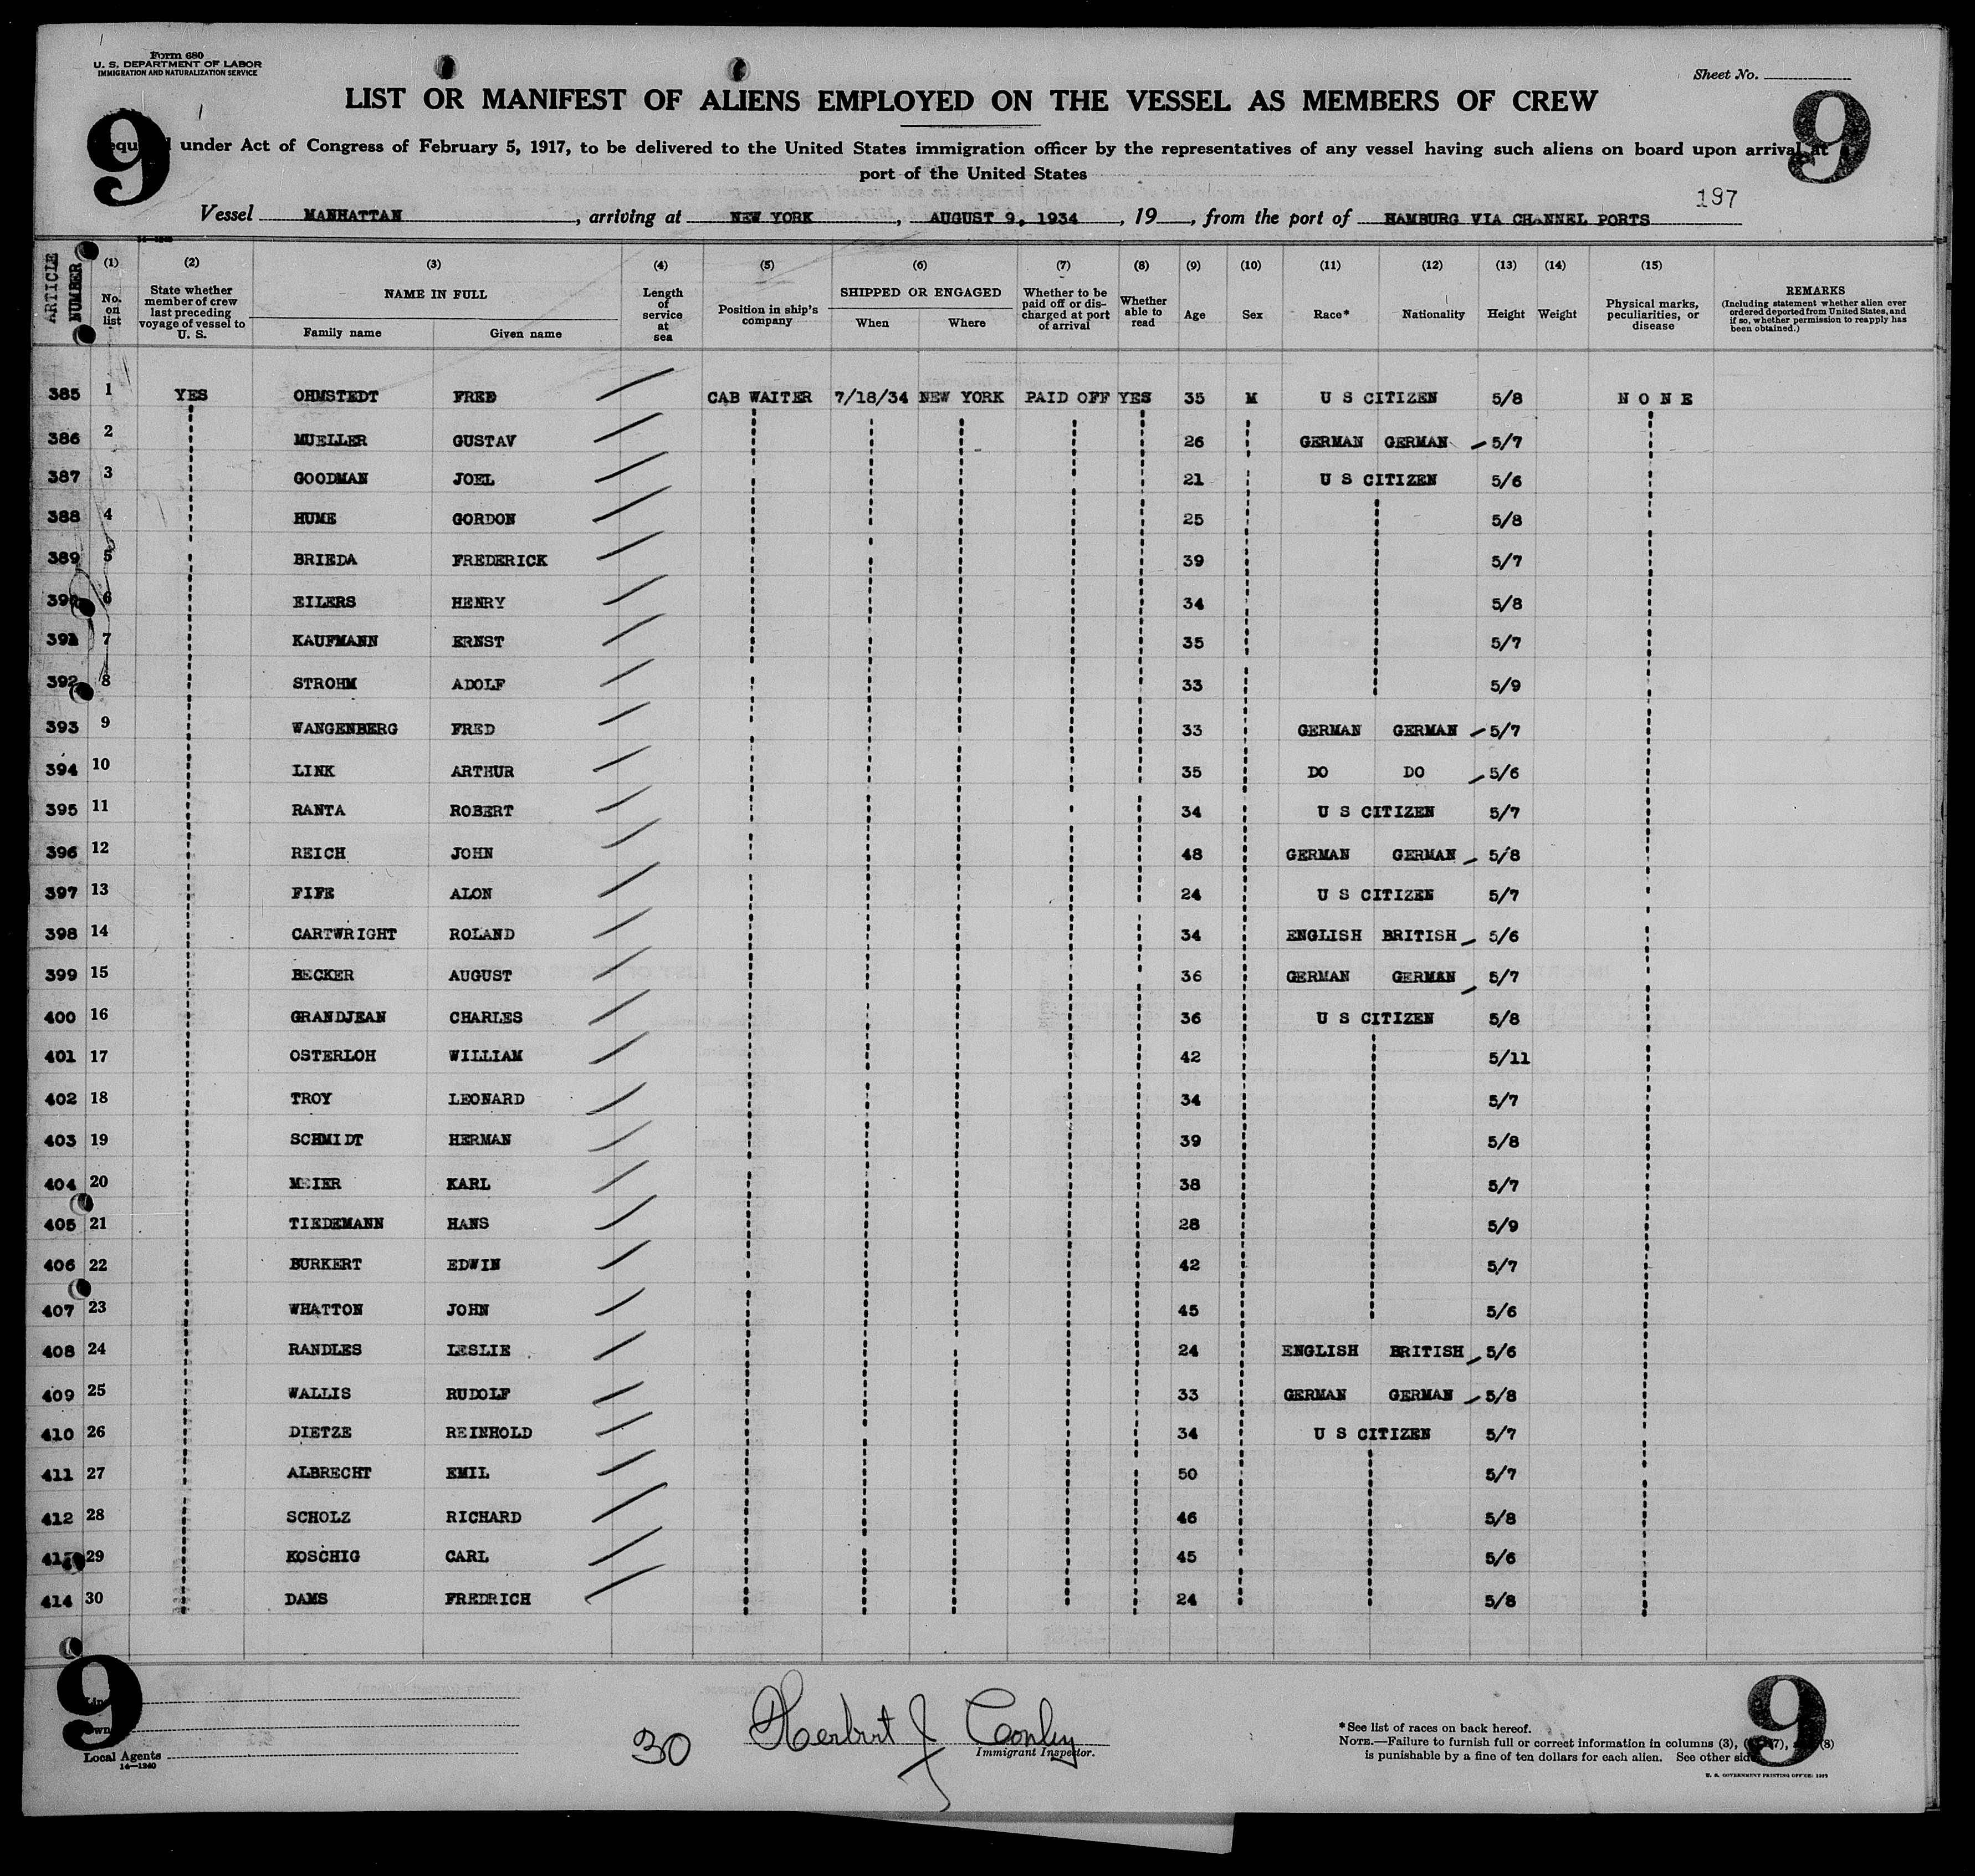 Form 680
U. S. DEPARTMENT OF LABOR
IMMIGRATION AND NATURALIZATION SERVICE
Sheet No.
LIST OR MANIFEST OF ALIENS EMPLOYED ON THE VESSEL AS MEMBERS OF CREW
9 9
under Act of Congress of February 5, 1917, to be delivered to the United States immigration officer by the representatives of any vessel having such aliens on board upon arrival at
port of the United States
197
Vessel MANHATTAN, arriving at NEW YORK, AUGUST 9, 1934, 19, from the port of HAMBURG VIA CHANNEL PORTS
ARTICLE NUMBER (1) No. on list (2) State whether member of crew last preceding voyage of vessel to U. S. (3) NAME IN FULL Family name Given name (4) Length of service at sea (5) Position in ship's company (6) SHIPPED OR ENGAGED When Where (7) Whether to be paid off or discharged at port of arrival (8) Whether able to read (9) Age (10) Sex (11) Race* (12) Nationality (13) Height (14) Weight (15) Physical marks, peculiarities, or disease REMARKS (Including statement whether alien ever ordered deported from United States, and if so, whether permission to reapply has been obtained.)
385 1 YES OHMSTEDT FRED CAB WAITER 7/18/34 NEW YORK PAID OFF YES 35 M U S CITIZEN 5/8 N O N E
386 2 MUELLER GUSTAV 26 GERMAN GERMAN 5/7
387 3 GOODMAN JOEL 21 U S CITIZEN 5/6
388 4 HUME GORDON 25 5/8
389 5 BRIEDA FREDERICK 39 5/7
390 6 EILERS HENRY 34 5/8
391 7 KAUFMANN ERNST 35 5/7
392 8 STROHM ADOLF 33 5/9
393 9 WANGENBERG FRED 33 GERMAN GERMAN 5/7
394 10 LINK ARTHUR 35 DO DO 5/6
395 11 RANTA ROBERT 34 U S CITIZEN 5/7
396 12 REICH JOHN 48 GERMAN GERMAN 5/8
397 13 FIFE ALON 24 U S CITIZEN 5/7
398 14 CARTWRIGHT ROLAND 34 ENGLISH BRITISH 5/6
399 15 BECKER AUGUST 36 GERMAN GERMAN 5/7
400 16 GRANDJEAN CHARLES 36 U S CITIZEN 5/8
401 17 OSTERLOH WILLIAM 42 5/11
402 18 TROY LEONARD 34 5/7
403 19 SCHMIDT HERMAN 39 5/8
404 20 MEIER KARL 38 5/7
405 21 TIEDEMANN HANS 28 5/9
406 22 BURKERT EDWIN 42 5/7
407 23 WHATTON JOHN 45 5/6
408 24 RANDLES LESLIE 24 ENGLISH BRITISH 5/6
409 25 WALLIS RUDOLF 33 GERMAN GERMAN 5/8
410 26 DIETZE REINHOLD 34 U S CITIZEN 5/7
411 27 ALBRECHT EMIL 50 5/7
412 28 SCHOLZ RICHARD 46 5/8
29 KOSCHIG CARL 45 5/6
414 30 DAMS FREDRICH 24 5/8
9 9
Local Agents
14—1240
30
Herbert J Conley
Immigrant Inspector.
*See list of races on back hereof.
NOTE.—Failure to furnish full or correct information in columns (3), (7), (8)
is punishable by a fine of ten dollars for each alien. See other
U. S. GOVERNMENT PRINTING OFFICE: